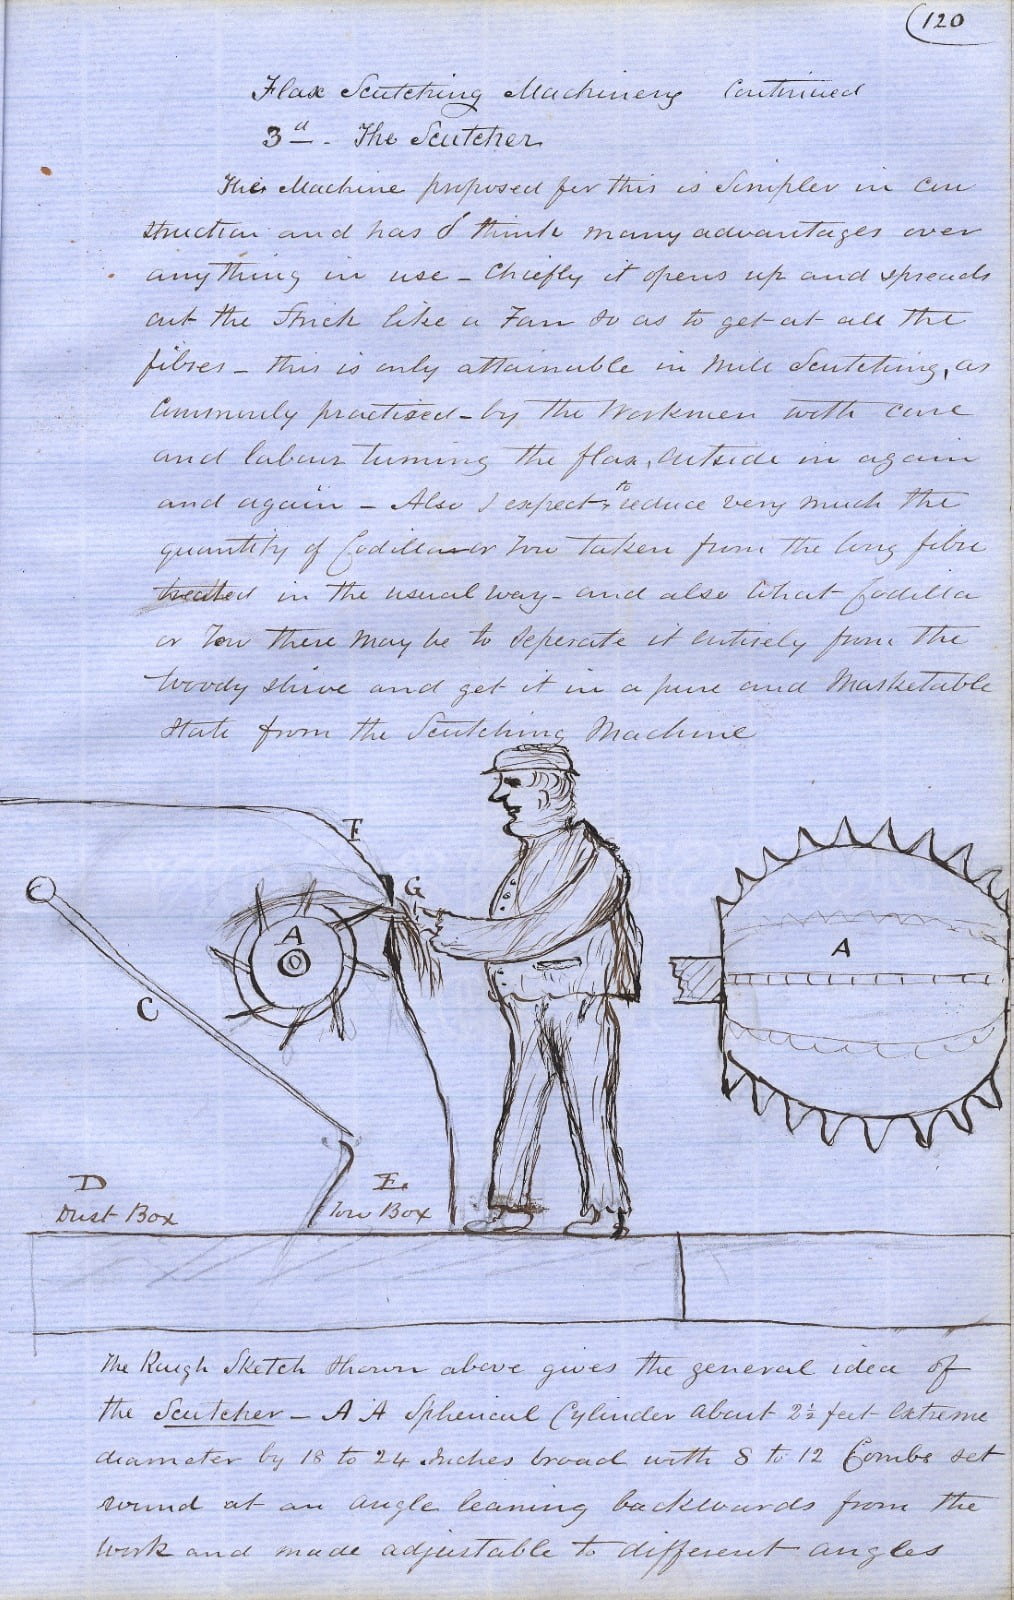 120
Flax Scutching Machinery Continued
3d - The Scutcher
The Machine proposed for this is Simpler in Con
struction and has I think many advantages over
anything in use - Chiefly it opens up and spreads
out the Strick like a Fan so as to get at all the
fibres - this is only attainable in Mill Scutching, as
Commonly practised - by the Workmen with care
and labour turning the flax, outside in again
and again - Also I expect to reduce very much the
quantity of Codilla or Tow taken from the long fibre
treated in the usual way - and also What Codilla
or Tow there may be to Seperate it entirely from the
Woody shive and get it in a pure and Marketable
State from the Scutching Machine
F
G
A
A
C
D
E.
Dust Box
Tow Box
The Rough Sketch shown above gives the general idea of
the Scutcher - A A Spherical Cylinder About 2½ feet Extreme
diameter by 18 to 24 Inches broad with 8 to 12 Combs set
round at an angle leaning backwards from the
work and made adjustable to different angles